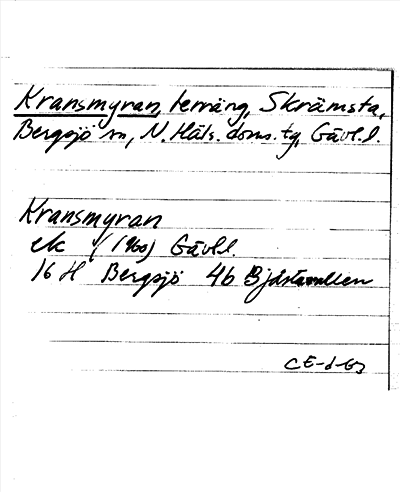 Kransmyran, terräng, Skrämsta,
Bergsjö sn, N. Häls. doms. tg, Gävl.l.
Kransmyran
ek (1960) Gävl.l.
16 H Bergsjö 4b
CE-d-G